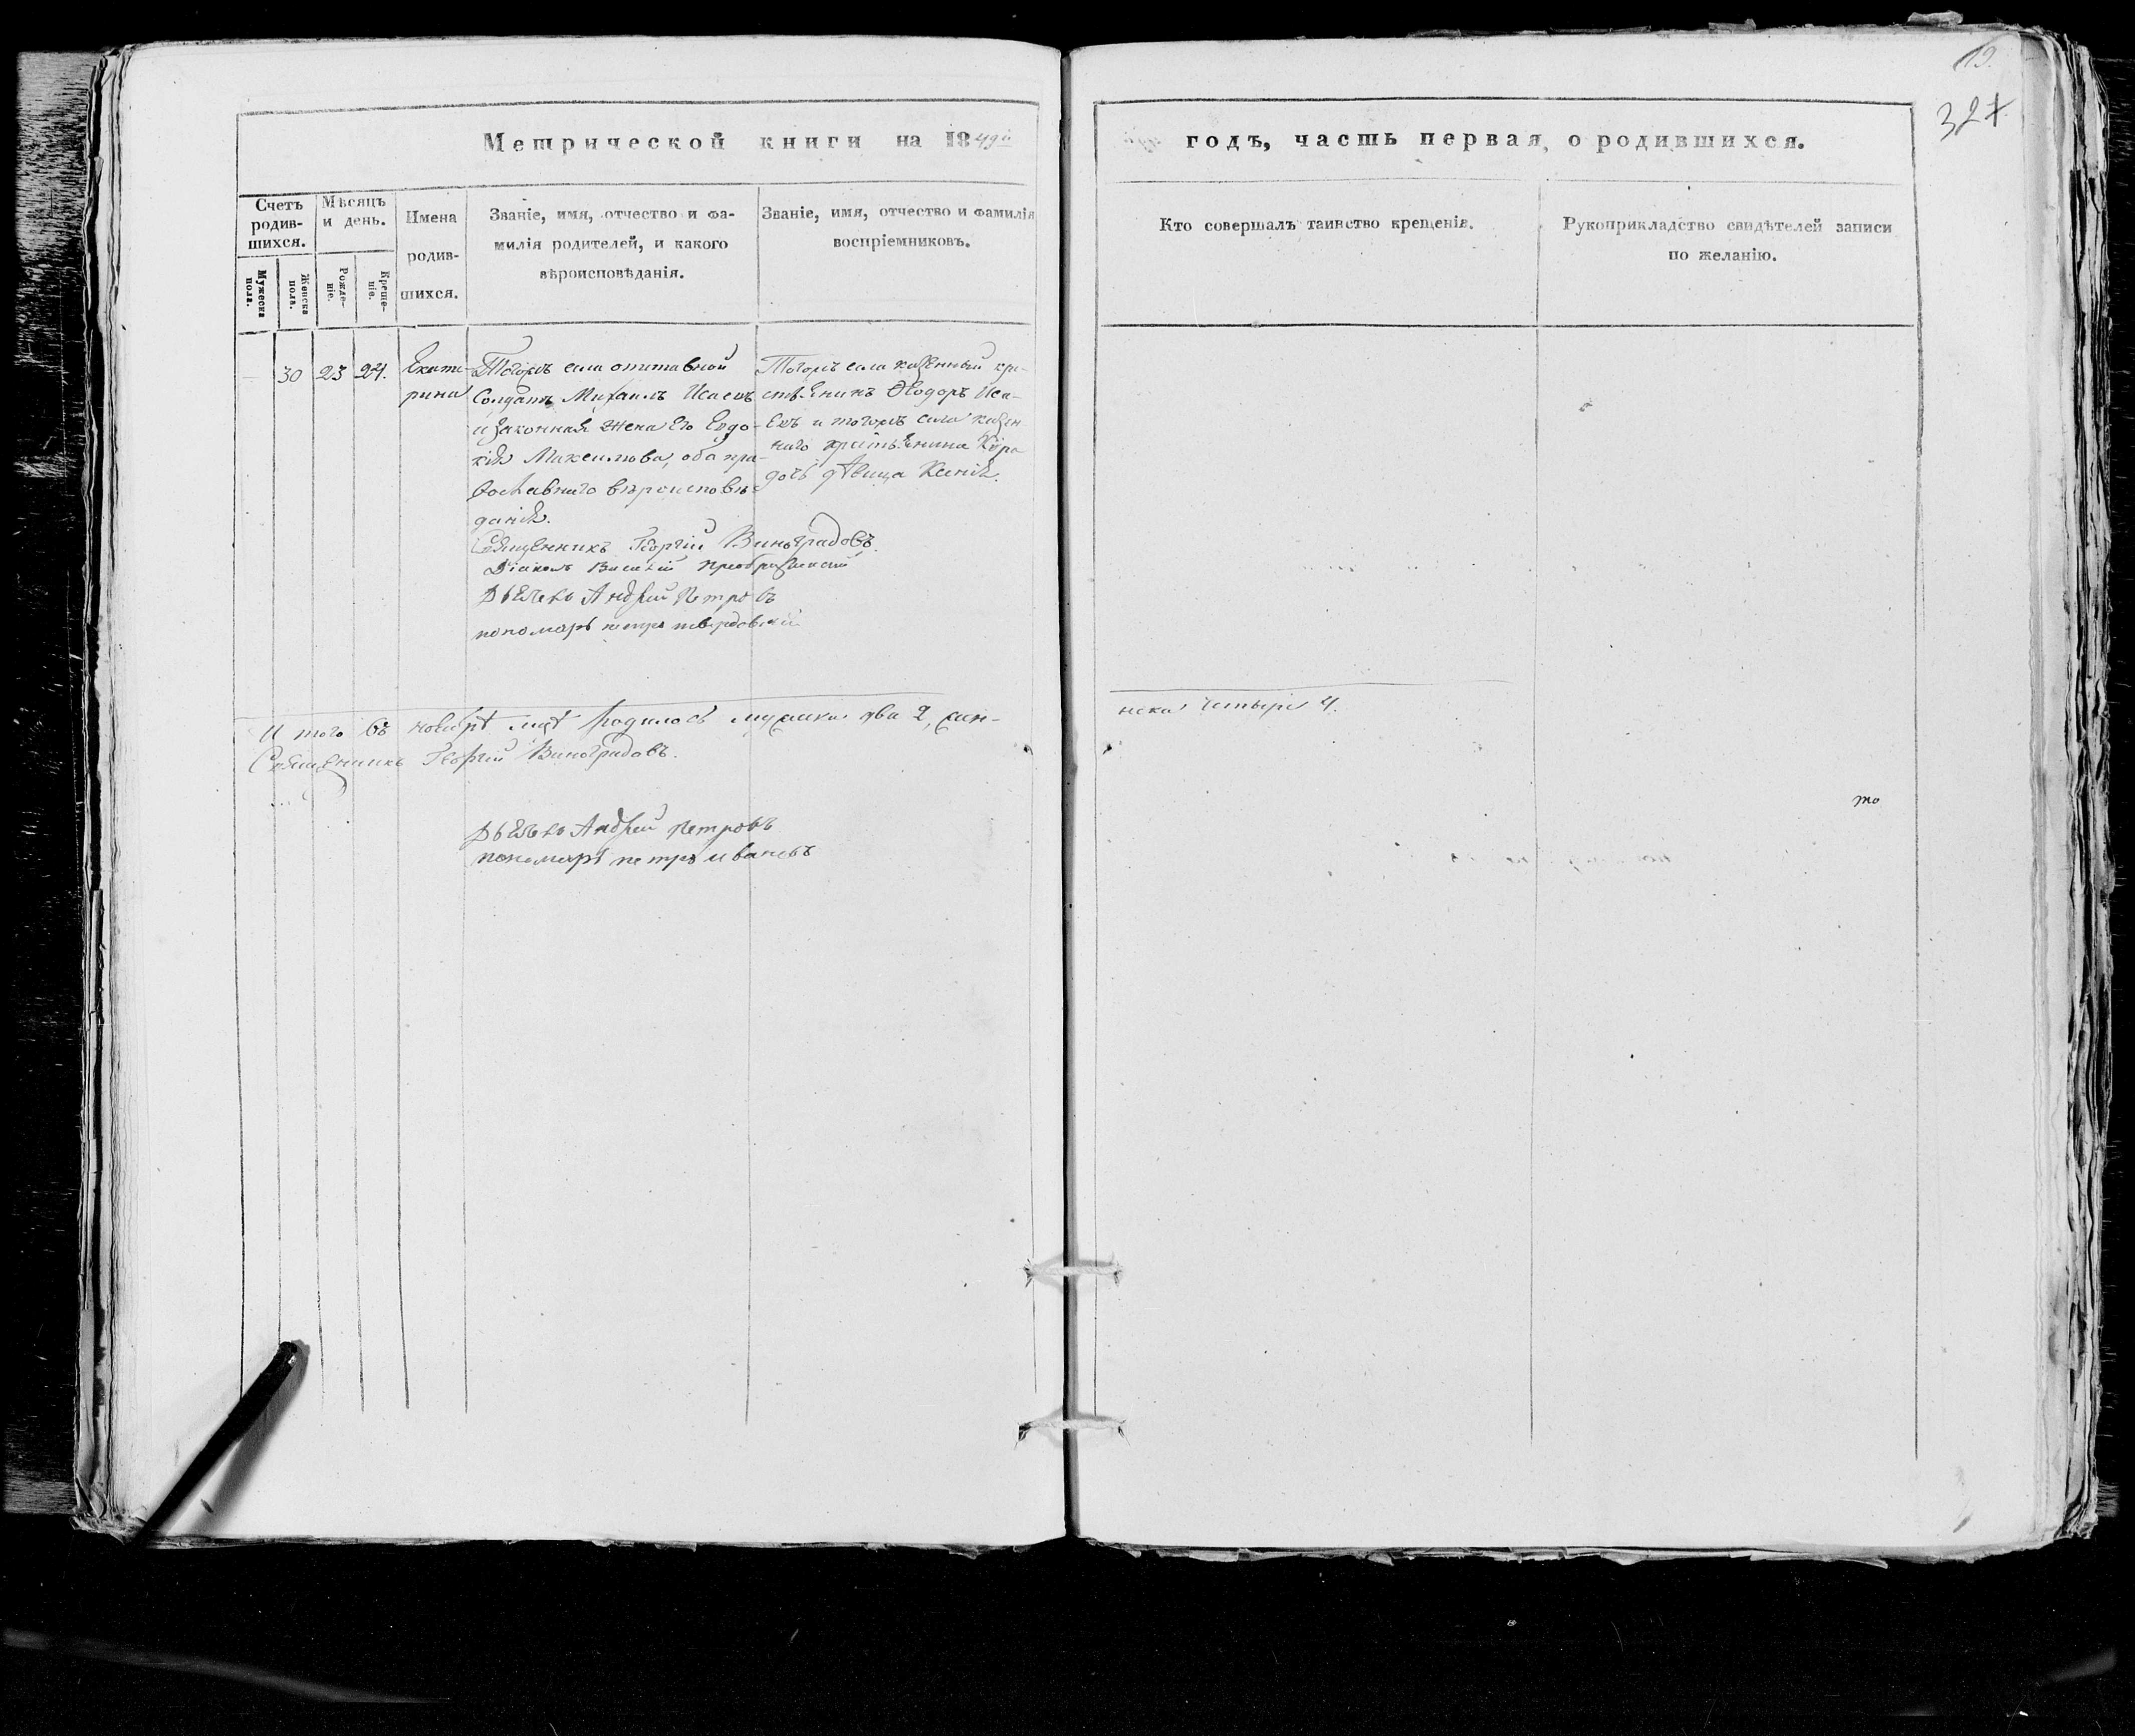 19.
327
Метрической книги на 1849й
годъ, часть первая, о родившихся.
Счетъ родив-шихся.
Мѣсяцъ и день.
Имена родив-шихся.
Званіе, имя, отчество и фа-
милія родителей, и какого
вѣроисповѣданія.
Званіе, имя, отчество и фамилія
воспріемниковъ.
Мужеска пола.
Женска пола.
Рожде-ніе.
Креще-ніе.
Кто совершалъ таинство крещенія.
Рукоприкладство свидѣтелей записи
по желанію.
30 23 24. Екате-
рина
Тогожъ села отставной
Солдатъ Михаилъ Исаевъ
и законная жена Его Евдо-
кія Максимова, оба пра-
вославнаго вѣроисповѣ-
данія.
Тогожъ села казенный кре-
стьЕнинъ Ѳеодоръ Иса-
Евъ и тогожъ села казен-
наго крестьЕнина
дочь дѣвица Ксенія.
Священникъ Георгій Виноградовъ.
Діаконъ Василій Преображенскій
Дьячекъ Андрей Петровъ
пономарь петръ твердовскій
И того въ ноябрѣ мцѣ родилось мужска два 2, жен-
ска четыре 4.
Священникъ Георгій Виноградовъ.
Дьячекъ Андрей Петровъ
пономарь петръ ивановъ
то